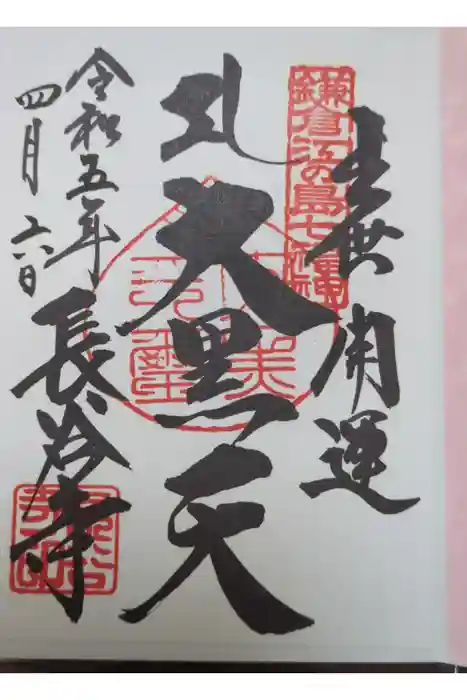 鎌倉江の島七福神
出世開運
礼大黒天
令和五年
四月六日
長谷寺